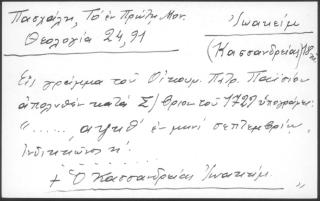 Πασχάλη, Τὸ ἐν Πρώτῃ Μον.
Θεολογία 24, 91
Ἰωακεὶμ
(Κασσανδρείας) 18ος
Εἰς γράμμα τοῦ Οἰκουμ. Πατρ. Παϊσίου
ἀπολυθὲν κατὰ Σ/βριον τοῦ 1727 ὑπογράφει:
"..... ἐν μηνὶ σεπτεμβρίῳ,
Ἰνδικτιῶνος κ'.
+ Ὁ Κασσανδρείας Ἰωακείμ. "